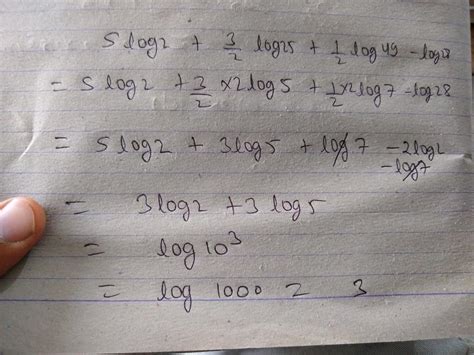 5 log2 + 3/2 log25 + 1/2 log 49 - log28
= 5 log 2 + 3/2 ×2 log 5 + 1/2 ×2 log 7 - log 28
= 5 log 2 + 3 log 5 + log 7 - 2 log 2
- log 7
= 3 log 2 + 3 log 5
= log 10³
= log 1000 = 3